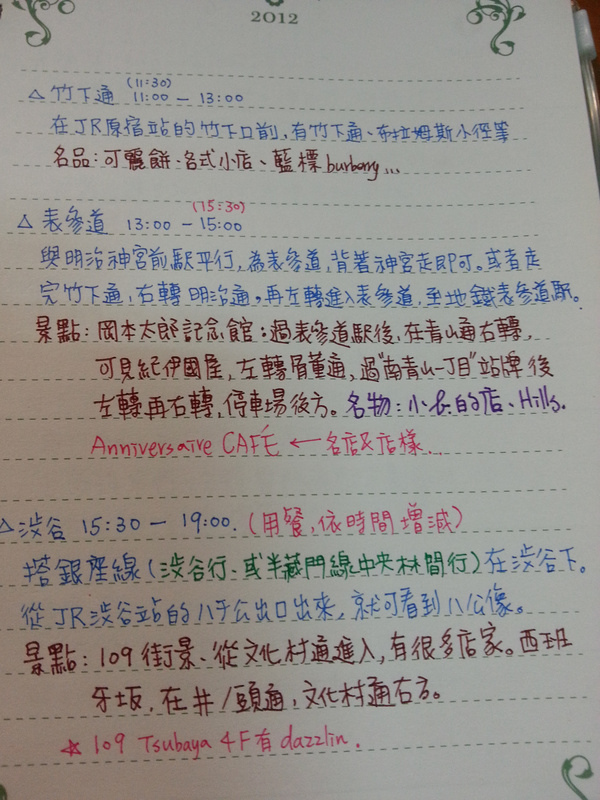 2012
(11:30)
△竹下通 11:00 — 13:00
在JR原宿站的竹下口前,有竹下通、布拉姆斯小徑等
名品:可麗餅、各式小店、藍標burberry...
(15:30)
△表參道 13:00 — 15:00
與明治神宮前駅平行,為表參道,背著神宮走即可。或者走
完竹下通,右轉明治通,再左轉進入表參道,至地鐵表參道駅。
景點:岡本太郎記念館:過表參道駅後,在青山通右轉,
可見紀伊國屋,左轉骨董通,過"南青山一丁目"站牌後
左轉再右轉,停車場後方。名物:小衣的店、Hills.
Anniversaire CAFÉ ← 名店&店樣...
△渋谷 15:30 — 19:00.(用餐,依時間增減)
搭銀座線(渋谷行、或半蔵門線中央林間行)在渋谷下。
從JR渋谷站的八チ公出口出來,就可看到八公像。
景點:109街景、從文化村通進入,有很多店家。西班
牙坂,在井ノ頭通,文化村通右方。
☆109 Tsubaya 4F有dazzlin.